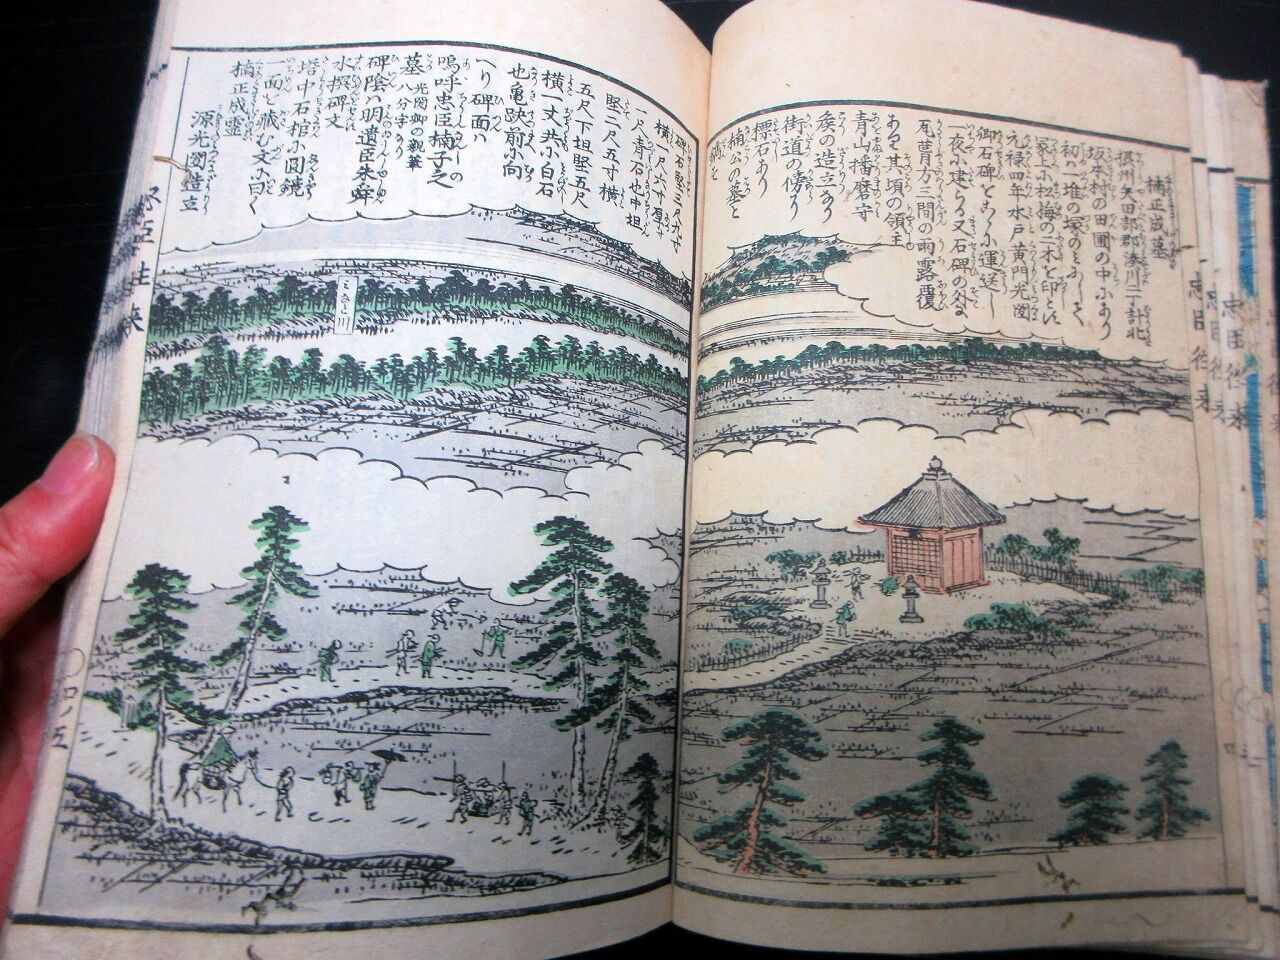 楠正成墓
摂州矢田部郡湊川二丁計北
坂本村の田圃の中にあり
初ハ一堆の塚のミにして
塚上小松梅の二木を印とに
元禄四年水戸黄門光圀
卿石碑をこゝに運送し
一夜に建らる又石碑の外に
瓦葺方三間の雨露覆
あるは其頃の領主
青山播磨守
矦の造立なり
街道の傍に
標石あり
楠公の墓と
碑石竪三尺九寸
横一尺八寸厚
一尺青石也中垣
竪二尺五寸横
五尺下垣竪五尺
横一丈共に白石
也亀趺前に向
へり碑面ハ
嗚呼忠臣楠子之
墓 光圀卿の親筆
八分字なり
碑陰ハ明遺臣朱舜
水撰碑文
塔中石棺に圓鏡
一面を蔵む文に曰く
楠正成霊
源光圀造立
みなと川
忠臣往来
四ノ五